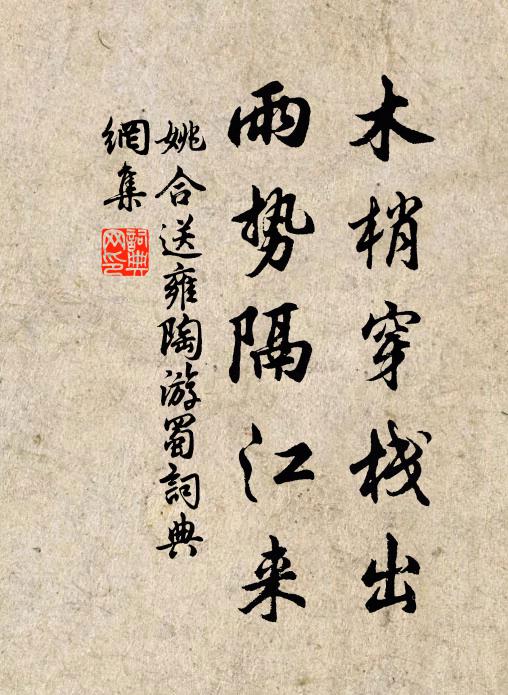 木梢穿栈出
雨势隔江来
姚合送雍陶游蜀詞典
網集
詞典
网印